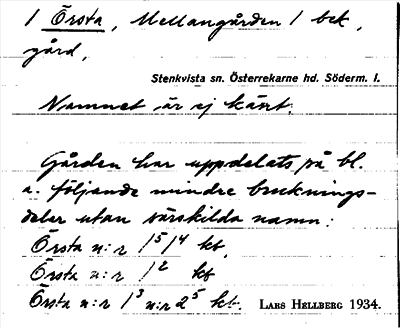 1 Örsta, Mellangården 1 bek,
gård,
Stenkvista sn. Österrekarne hd. Söderm. l.
Namnet är ej känt.
Gården har uppdelats på bl.
a. följande mindre bruknings-
delar utan särskilda namn:
Örsta n:r 1⁵ 1⁴ kt.
Örsta n:r 1² kt
Örsta n:r 1³ n:r 2⁵ kt. LARS HELLBERG 1934.